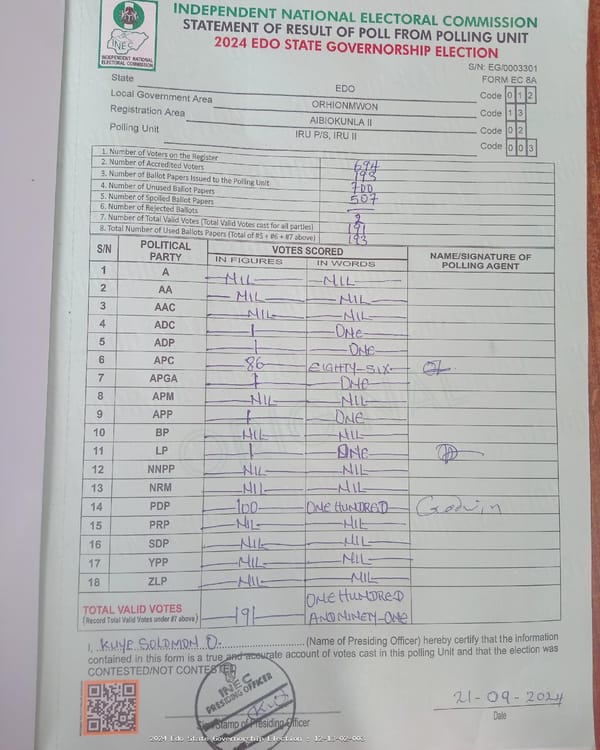 INDEPENDENT NATIONAL ELECTORAL COMMISSION
STATEMENT OF RESULT OF POLL FROM POLLING UNIT
2024 EDO STATE GOVERNORSHIP ELECTION
INEC
INDEPENDENT NATIONAL
ELECTORAL COMMISSION
S/N: EG/0003301
FORM EC 8A
State EDO Code 0 1 2
Local Government Area ORHIONMWON Code 1 3
Registration Area AIBIOKUNLA II Code 0 2
Polling Unit IRU P/S, IRU II Code 0 0 3
1. Number of Voters on the Register 694
2. Number of Accredited Voters 193
3. Number of Ballot Papers Issued to the Polling Unit 700
4. Number of Unused Ballot Papers 507
5. Number of Spoiled Ballot Papers —
6. Number of Rejected Ballots 2
7. Number of Total Valid Votes (Total Valid Votes cast for all parties) 191
8. Total Number of Used Ballots Papers (Total of #5 + #6 + #7 above) 193
S/N POLITICAL PARTY VOTES SCORED NAME/SIGNATURE OF POLLING AGENT
IN FIGURES IN WORDS
1 A NIL NIL
2 AA NIL NIL
3 AAC NIL NIL
4 ADC 1 ONE
5 ADP 1 ONE
6 APC 86 EIGHTY-SIX
7 APGA 1 ONE
8 APM NIL NIL
9 APP 1 ONE
10 BP NIL NIL
11 LP 1 ONE
12 NNPP NIL NIL
13 NRM NIL NIL
14 PDP 100 ONE HUNDRED Godwin
15 PRP NIL NIL
16 SDP NIL NIL
17 YPP NIL NIL
18 ZLP NIL NIL
TOTAL VALID VOTES 191 ONE HUNDRED
(Record Total Valid Votes under #7 above) AND NINETY-ONE
I, KUYE SOLOMON O. (Name of Presiding Officer) hereby certify that the information
contained in this form is a true and accurate account of votes cast in this polling Unit and that the election was
CONTESTED/NOT CONTESTED
INEC
PRESIDING OFFICER
21-09-2024
Stamp of Presiding Officer Date
2024 Edo State Governorship Election : 12-13-02-003